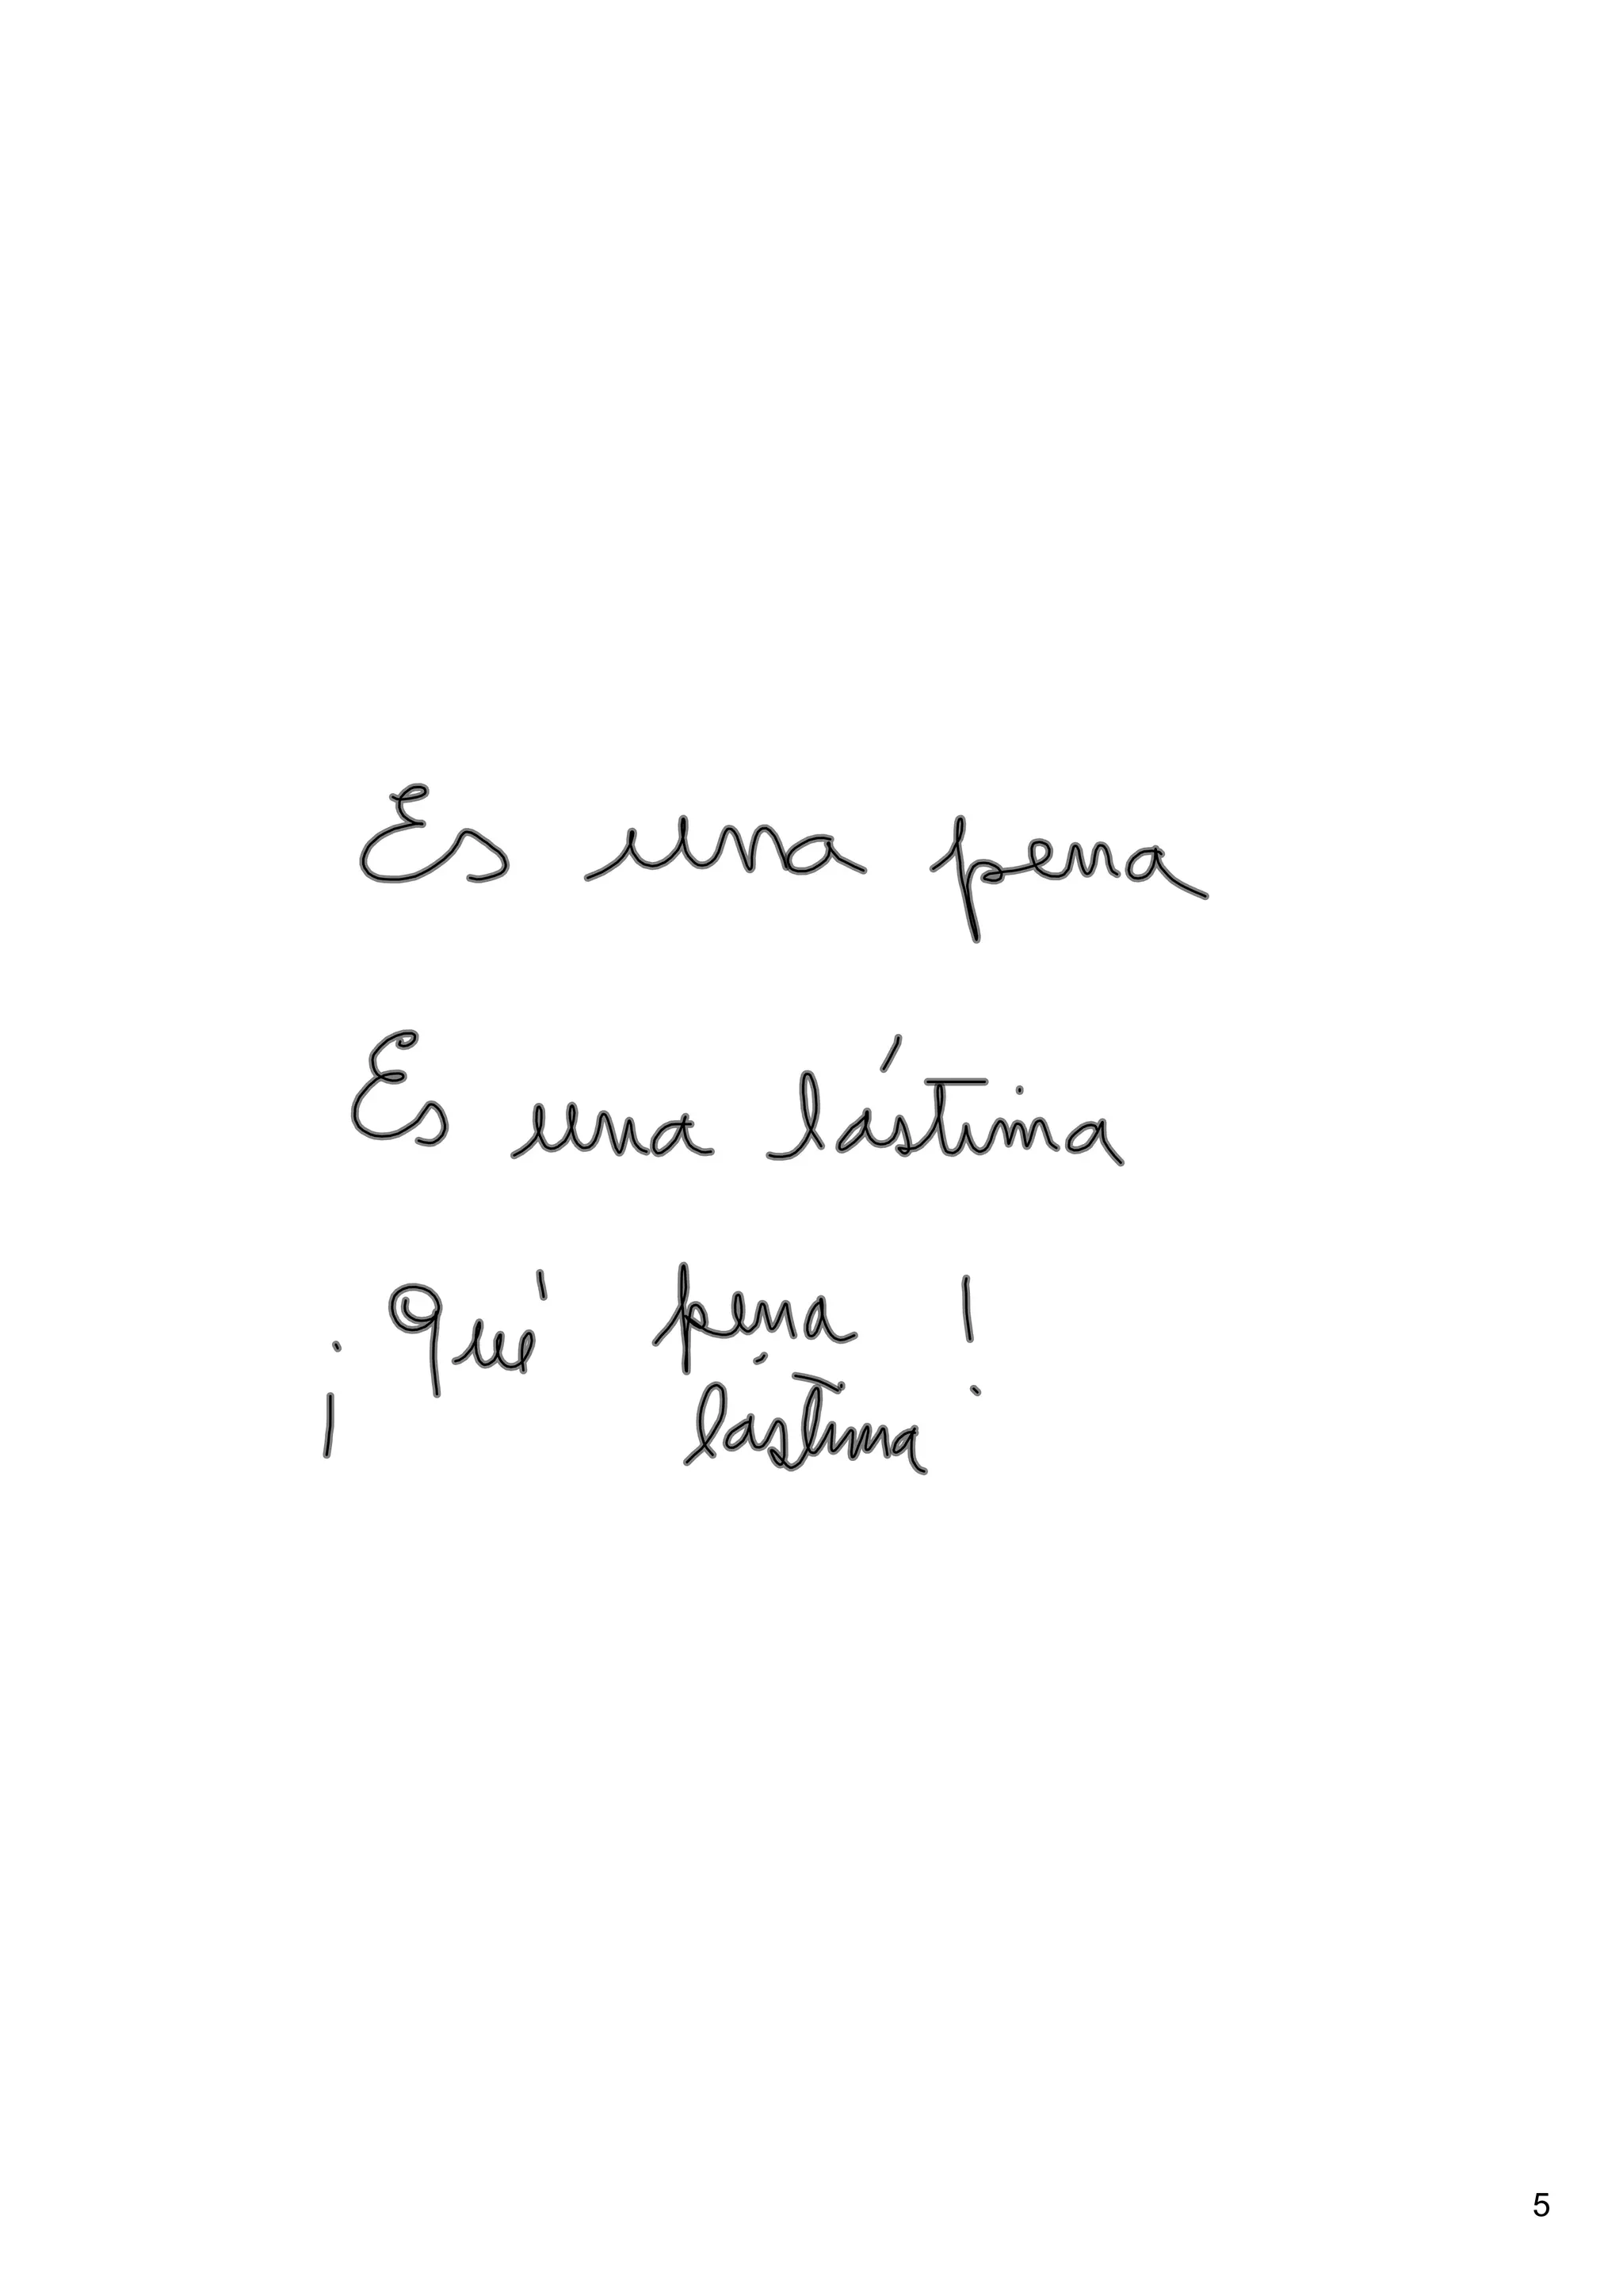 Es una pena
Es una lástima
¡Qué pena!
lástima
5